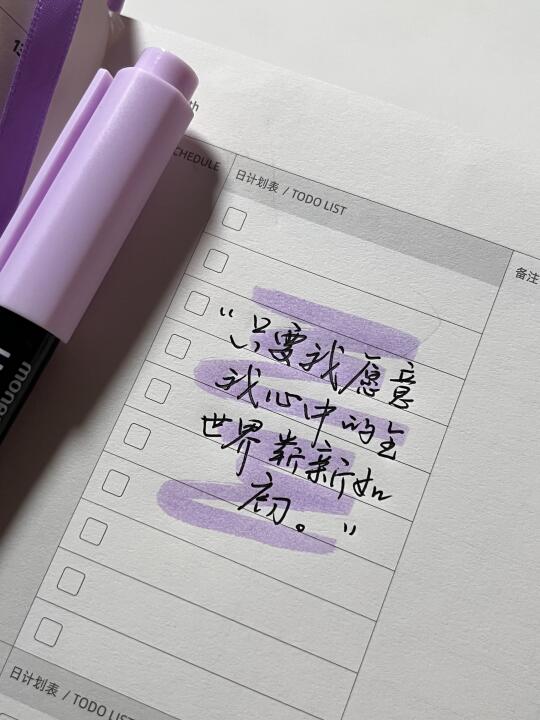 13
th
SCHEDULE
日计划表 / TODO LIST
备注
“只要我愿意
我心中的全
世界崭新如
初。”
mone
日计划表 / TODO LIST